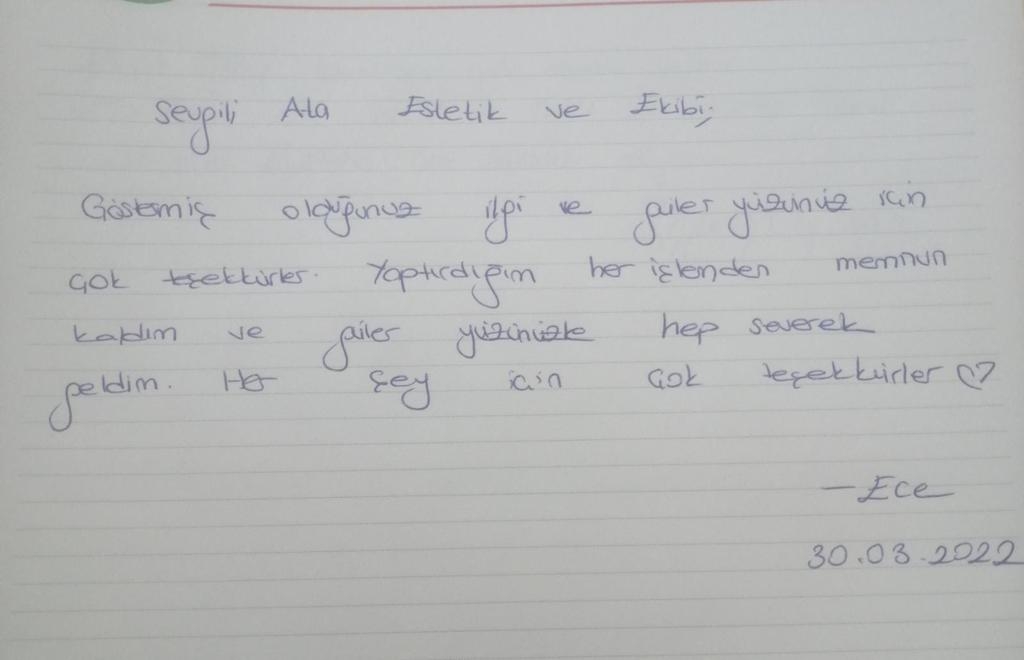 Sevgili Ala Estetik ve Ekibi;
Göstermiş olduğunuz ilgi ve güler yüzünüz için
çok teşekkürler. Yaptırdığım her işlemden memnun
kaldım ve güler yüzünüzle hep severek
geldim. Her şey için çok teşekkürler ♡
- Ece
30.03.2022